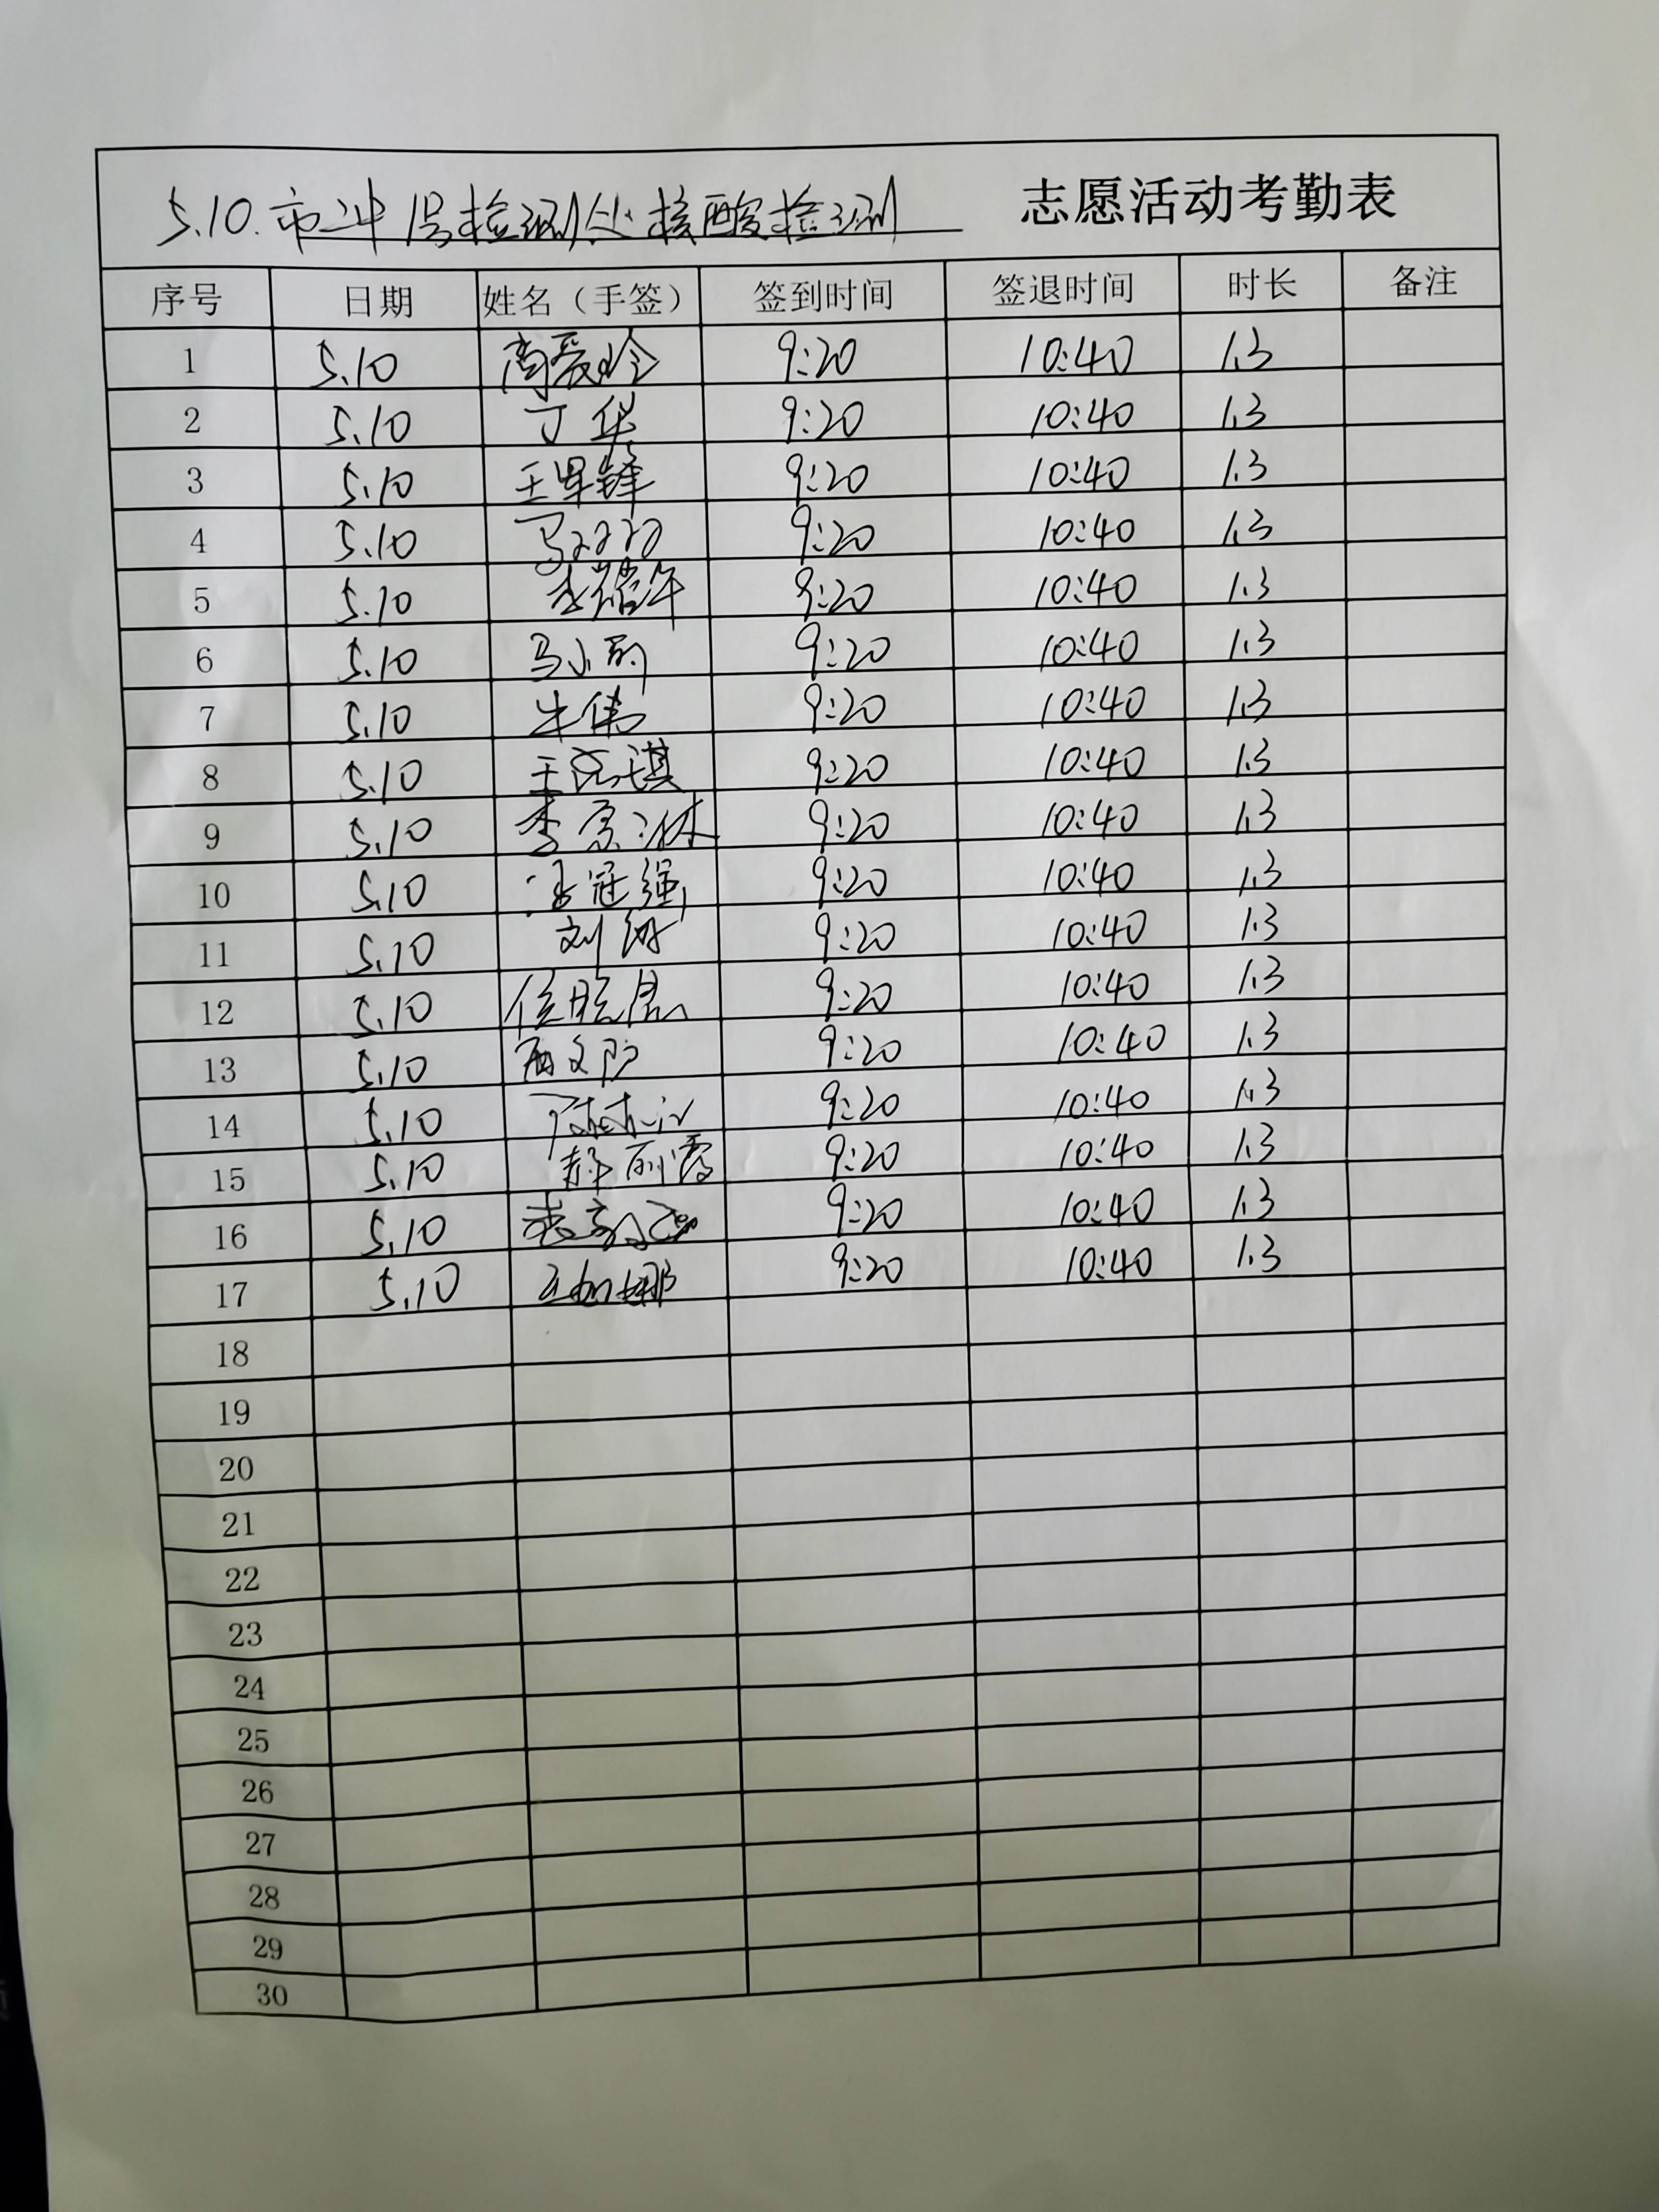 5.10.市二中1号检测处核酸检测 志愿活动考勤表
序号 日期 姓名（手签） 签到时间 签退时间 时长 备注
1 5.10 尚爱玲 9:20 10:40 1.3
2 5.10 丁华 9:20 10:40 1.3
3 5.10 王军锋 9:20 10:40 1.3
4 5.10 9:20 10:40 1.3
5 5.10 9:20 10:40 1.3
6 5.10 马小丽 9:20 10:40 1.3
7 5.10 牛伟 9:20 10:40 1.3
8 5.10 9:20 10:40 1.3
9 5.10 9:20 10:40 1.3
10 5.10 冠强 9:20 10:40 1.3
11 5.10 刘 9:20 10:40 1.3
12 5.10 9:20 10:40 1.3
13 5.10 9:20 10:40 1.3
14 5.10 9:20 10:40 1.3
15 5.10 丽霞 9:20 10:40 1.3
16 5.10 9:20 10:40 1.3
17 5.10 9:20 10:40 1.3
18
19
20
21
22
23
24
25
26
27
28
29
30